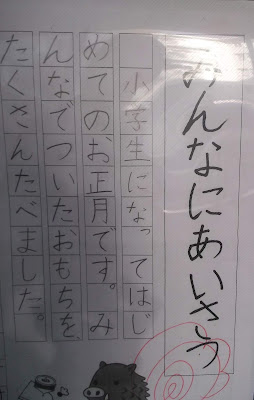 みんなにあいさつ
小学生になってはじ
めてのお正月です。み
んなでついたおもちを、
たくさんたべました。